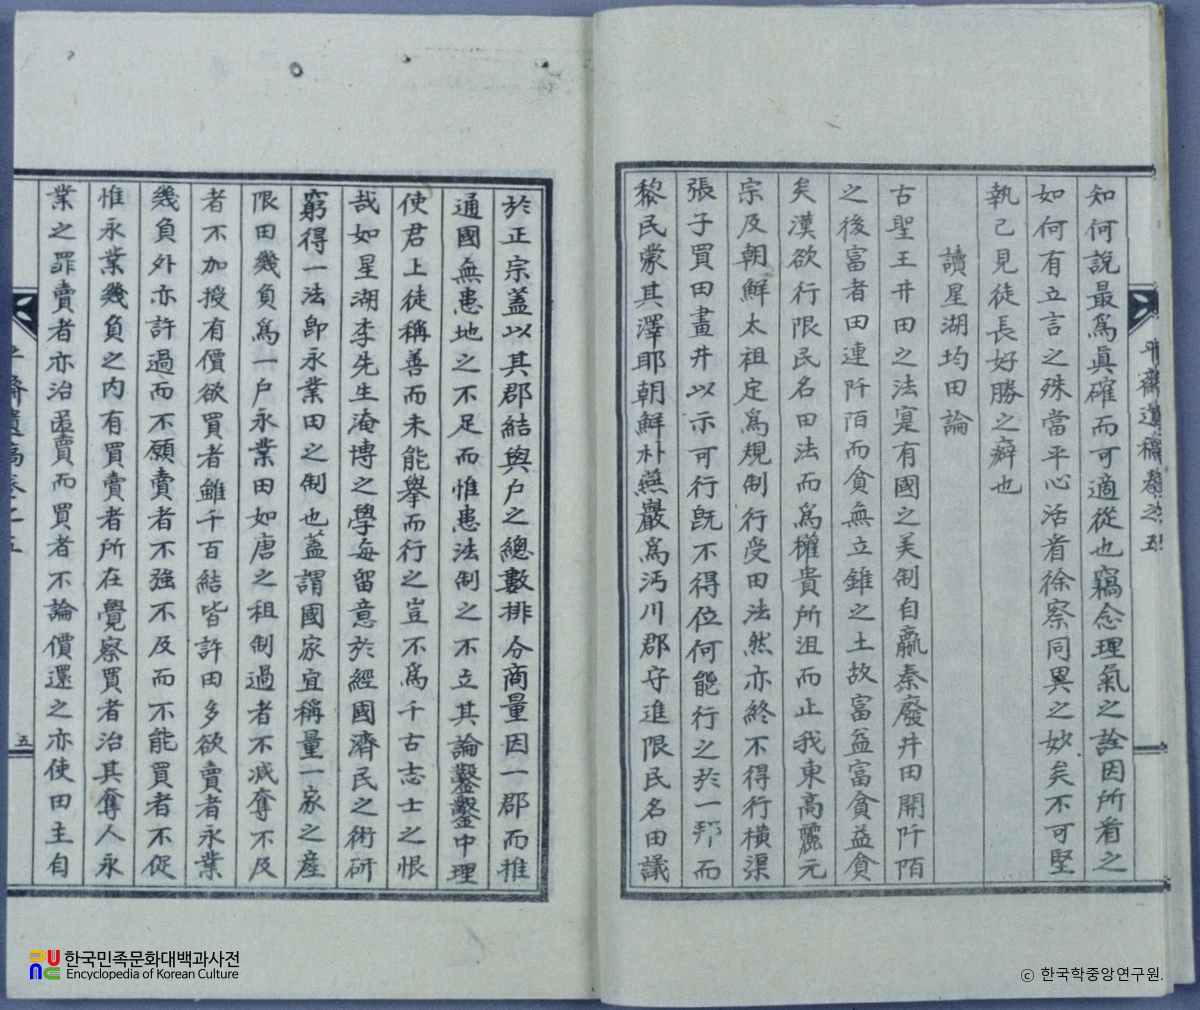 知何說最爲眞確而可適從也竊念理氣之詮因所看之
如何有立言之殊當平心活看徐察同異之妙矣不可堅
執己見徒長好勝之癖也
讀星湖均田論
古聖王井田之法寔有國之美制自嬴秦廢井田開阡陌
之後富者田連阡陌而貧無立錐之土故富益富貧益貧
矣漢欲行限民名田法而爲權貴所沮而止我東高麗元
宗及朝鮮太祖定爲規制行受田法然亦終不得行橫渠
張子買田畫井以示可行旣不得位何能行之於一邦而
黎民蒙其澤耶朝鮮朴燕巖爲沔川郡守進限民名田議
於正宗蓋以其郡結與户之總數排分商量因一郡而推
通國無患地之不足而惟患法制之不立其論鑿鑿中理
使君上徒稱善而未能擧而行之豈不爲千古志士之恨
哉如星湖李先生淹博之學每留意於經國濟民之術研
窮得一法卽永業田之制也蓋謂國家宜稱量一家之産
限田幾負爲一户永業田如唐之租制過者不减奪不及
者不加授有價欲買者雖千百結皆許田多欲賣者永業
幾負外亦許過而不願賣者不強不及而不能買者不促
惟永業幾負之內有買賣者所在覺察買者治其奪人永
業之罪賣者亦治匿賣而買者不論價還之亦使田主自
五
한국민족문화대백과사전
Encyclopedia of Korean Culture
© 한국학중앙연구원.